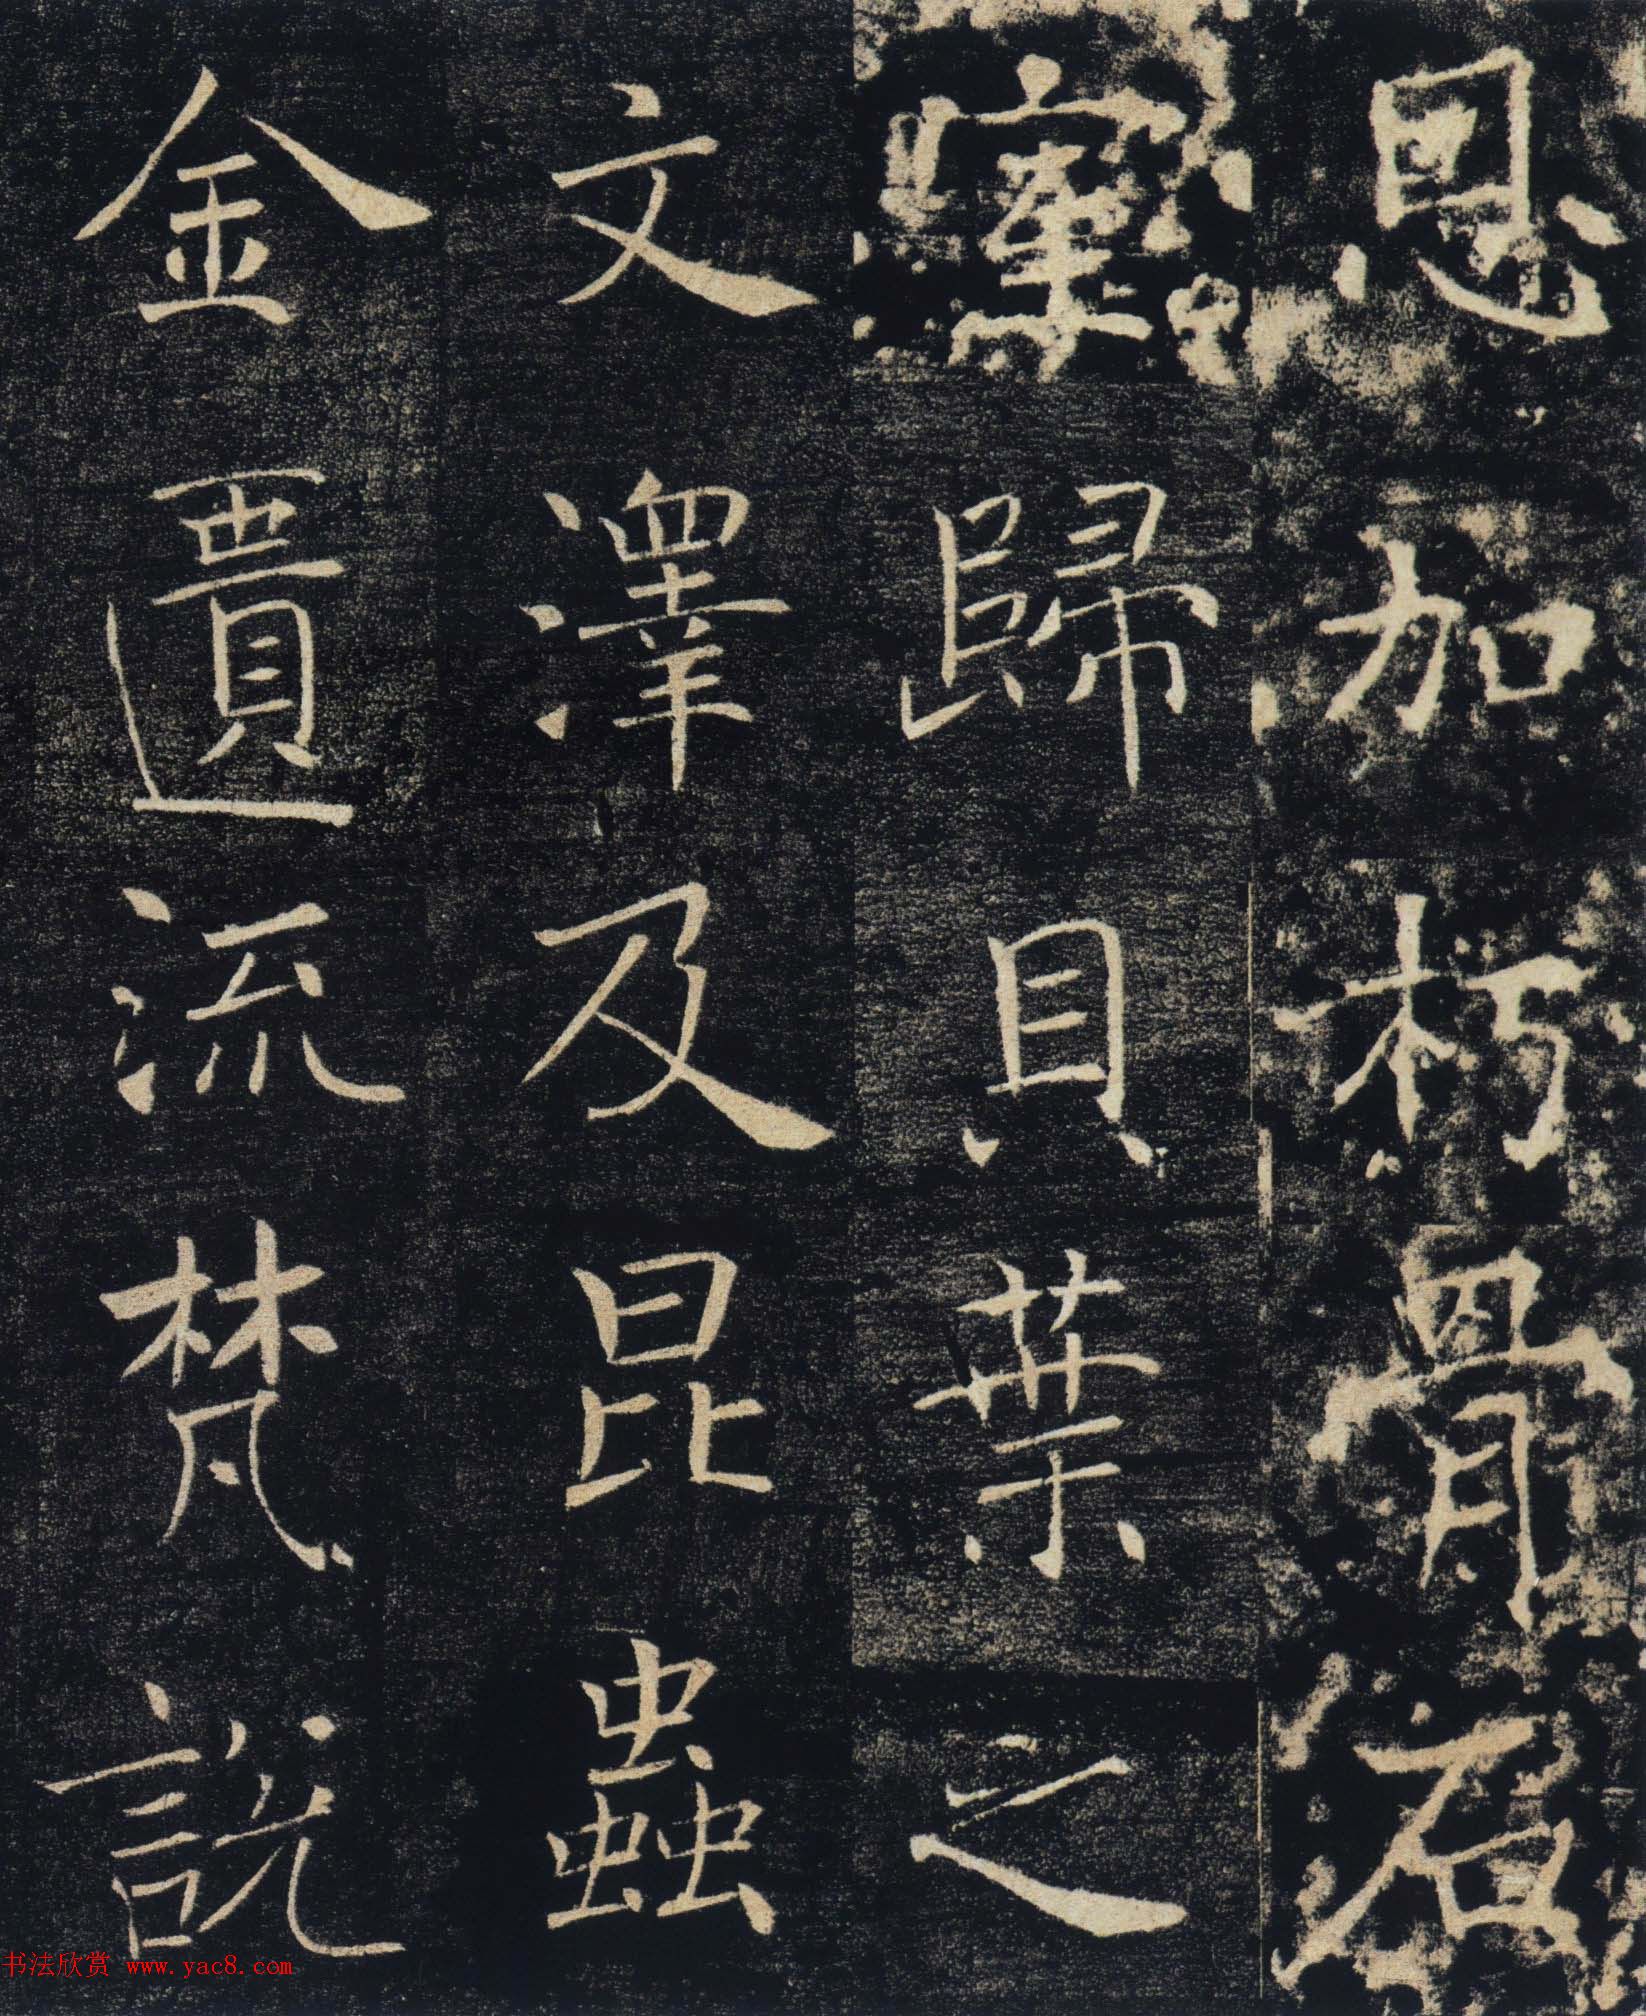 恩加朽骨石
室歸貝葉之
文澤及昆蟲
金匱流梵說
书法欣赏 www.yac8.com